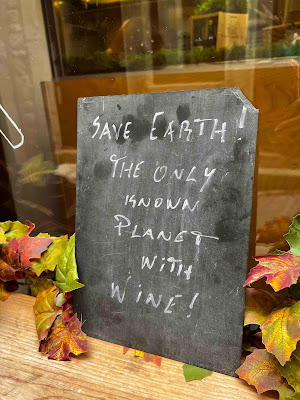 SAVE EARTH!
THE ONLY
KNOWN
PLANET
WITH
WINE!